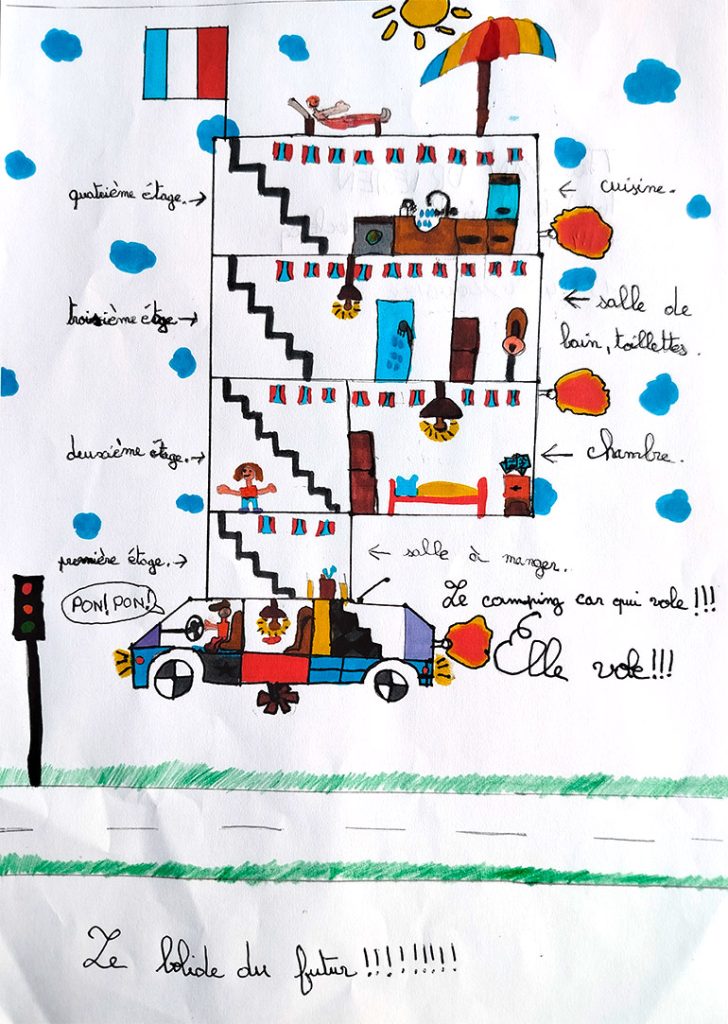 quatrième étage. →
← cuisine.
troisième étage →
← salle de
bain, toillettes.
deuxsième étage. →
← chambre.
première étage. →
← salle à manger.
PON! PON!
Le camping car qui vole !!!
Elle vole!!!
Le bolide du futur!!!!!!!!!